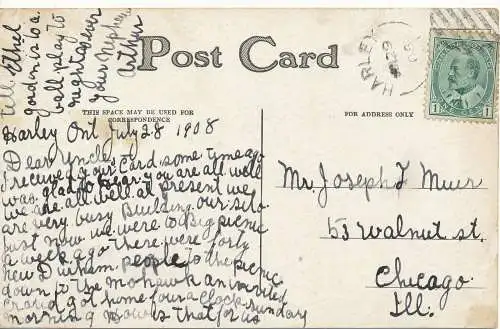 Post Card
THIS SPACE MAY BE USED FOR
CORRESPONDENCE
FOR ADDRESS ONLY
HARLEY
Harley Ont July 28 1908
Dear Uncle
I received your card some time ago
was glad to hear you are all well
we are all well at present we
are very busy building our silo
just now we were to a big picnic
a week ago there were forty
new Durham people to the picnic
down to the mohawk
got home four a clock sunday
morning how is that for us
till Ethel
gordon is to a
ball play to
night
your Nephew
Arthur
Mr Joseph T Muir
53 Walnut st.
Chicago
Ill.